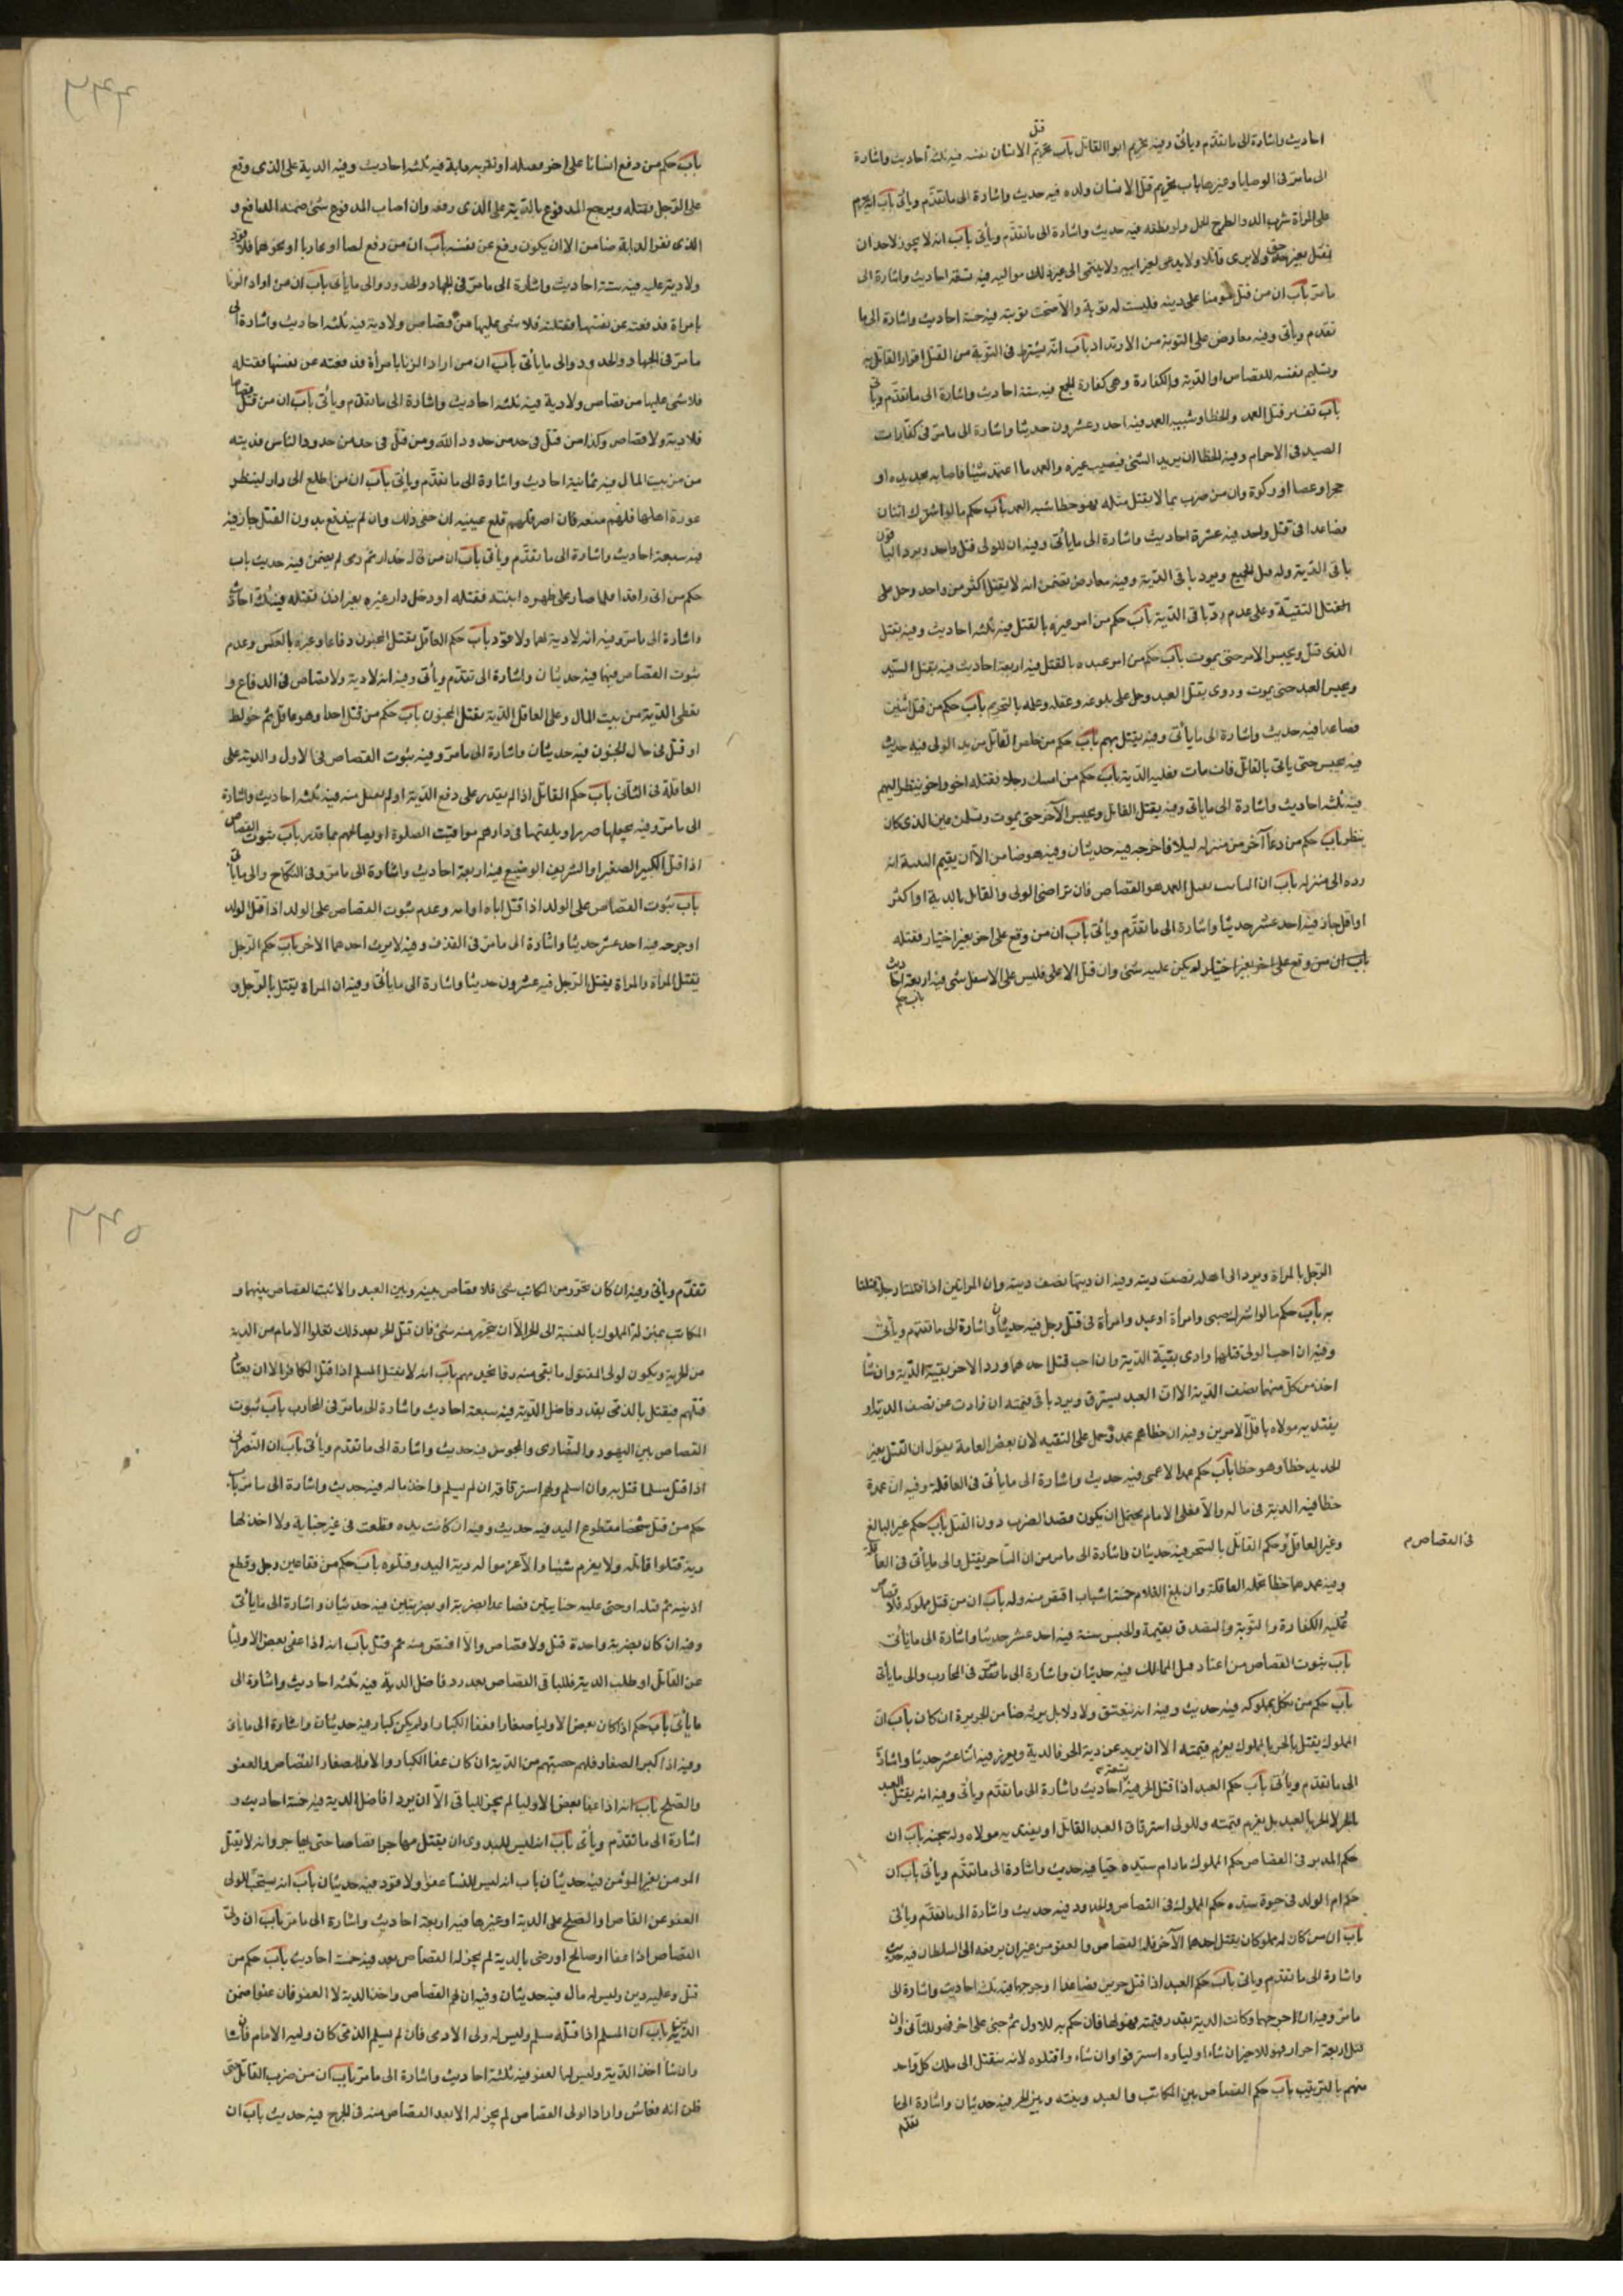 احاديث واشارة الى ما تقدّم وياتى وفيه تحريم ايوا القاتل باب تحريم قتل الانسان نفسه فيه ثلثه احاديث واشارة
الى ما مرّ فى الوصايا وغيرها باب تحريم قتل الانسان ولده فيه حديث واشارة الى ما تقدّم وياتى باب تحريم
على المراة شرب الدوا لطرح الحمل ولو نطفه فيه حديث واشارة الى ما تقدّم وياتى باب انه لا يجوز لاحد ان
يقتل بغير حق ولا يروى قاتلا ولا يدعى لغير ابيه ولا ينتمى الى غير ذلك مواليه فيه تسعة احاديث واشارة الى
ما مرّ باب ان من قتل مومنا على دينه فليست له توبة والا صحّت توبته فيه خمسة احاديث واشارة الى ما
تقدم وياتى وفيه معارض على التوبة من الارتداد باب انّه يشترط فى التّوبة من القتل اقرار القاتل به
وتسليم نفسه للقصاص او الدّية والكفارة وهى كفارة الجمع فيه ستة احاديث واشارة الى ما تقدّم وياتى
باب تفسير قتل العمد والخطا وشبيه العمد فيه احد وعشرون حديثا واشارة الى ما مرّ فى كفّارات
الصيد فى الاحرام وفيه الخطا ان يريد الشئ فيصيب غيره والعمد ما اعتمد شيئا فاصابه بحديدة او
حجر او عصا او وكزة وان من ضرب بما لا يقتل مثله فهو خطا شبه العمد باب حكم ما لو اشترك اثنان
فصاعدا فى قتل واحد فيه عشرة احاديث واشارة الى ما ياتى وفيه ان للولى قتل واحد ويرد الباقون
باقى الدّية وله قتل الجميع ويرد باقى الدّية وفيه معارض تضمن انه لا يقتل اكثر من واحد وحمل على
التقيّة وعلى عدم ردّ باقى الدّية باب حكم من امر غيره بالقتل فيه ثلثه احاديث وفيه يقتل
الذى قتل ويحبس الامر حتى يموت باب حكم من امر عبده بالقتل فيه اربعة احاديث فيه يقتل السّيد
ويحبس العبد حتى يموت وروى يقتل العبد وحمل على بلوغه وعقله وعلمه بالتحريم باب حكم من قتل اثنين
فصاعدا فيه حديث واشارة الى ما ياتى وفيه يقتل بهم باب حكم من خلص القاتل من يد الولى فيه حديث
فيه يحبس حتى ياتى بالقاتل فان مات فعليه الدّية باب حكم من امسك رجلا فقتله اخر واخر ينظر اليهم
فيه ثلثه احاديث واشارة الى ما ياتى وفيه يقتل القاتل ويحبس الآخر حتى يموت وتسمل عين الذى كان
ينظر باب حكم من دعا آخر من منزله ليلا فاخرجه فيه حديثان وفيه هو ضامن الا ان يقيم البينة انه
رده الى منزله باب ان الثابت بقتل العمد هو القصاص فان تراضى الولى والقاتل بالدية او اكثر
او اقل جاز فيه احد عشر حديثا واشارة الى ما تقدّم وياتى باب ان من وقع على اخر بغير اختيار فقتله
باب ان من وقع على اخر بغير اختيار لم يكن عليه شئ وان قتل الاعلى فليس على الاسفل شئ فيه اربعة احاديث
باب حكم
باب حكم من دفع انسانا على اخر فقتله او نفر به دابة فيه ثلثه احاديث وفيه الدية على الذى وقع
على الرّجل فقتله ويرجع المدفوع بالدّية على الذى دفعه وان اصاب المدفوع شئ ضمنه الدافع و
الذى نفر الدابة ضامن الا ان يكون دفع عن نفسه باب ان من دفع لصا او محاربا او نحوهما فلا قود
ولا دية عليه فيه ستة احاديث واشارة الى ما مرّ فى الجهاد والحدود والى ما ياتى باب ان من اراد الزنا
بامراة فدفعته عن نفسها فقتلته فلا شئ عليها من قصاص ولا دية فيه ثلثه احاديث واشارة الى
ما مرّ فى الجهاد والحدود والى ما ياتى باب ان من اراد الزنا بامرأة فدفعته عن نفسها فقتلته
فلا شئ عليها من قصاص ولا دية فيه ثلثه احاديث واشارة الى ما تقدّم وياتى باب ان من قتل قصاصا
فلا دية ولا قصاص وكذا من قتل فى حد من حدود الله ومن قتل فى حد من حدود الناس فديته
من من بيت المال فيه ثمانية احاديث واشارة الى ما تقدّم وياتى باب ان من اطلع الى دار لينظر
عورة اهلها فلهم منعه فان اصر فلهم قلع عينيه ان حتى ذلك وان لم يندفع بدون القتل جاز فيه
فيه سبعة احاديث واشارة الى ما تقدّم وياتى باب ان من قال حذار ثم رمى لم يضمن فيه حديث باب
حكم من اتى راقدا فلما صار على ظهره انتبه فقتله او دخل دار غيره بغير اذن فقتله فيه ثلث احاديث
واشارة الى ما مرّ وفيه انه لا دية لهما ولا قود باب حكم العاقل يقتل المجنون دفاعا وغيره بالعكس وعدم
ثبوت القصاص فيهما فيه حديثان واشارة الى تقدّم وياتى وفيه انه لا دية ولا قصاص فى الدفاع و
يعطى الدّية من بيت المال وعلى العاقل الدّية بقتل المجنون باب حكم من قتل احدا وهو عاقل ثم خولط
او قتل فى حال الجنون فيه حديثان واشارة الى ما مرّ وفيه ثبوت القصاص فى الاول والدية على
العاقلة فى الثّانى باب حكم القاتل اذا لم يقدر على دفع الدّية او لم يقبل منه فيه ثلثه احاديث واشارة
الى ما مرّ وفيه يجعلها صررا ويلقيها فى دارهم مواقيت الصلوة او يصالحهم بما قدر باب ثبوت القصاص
اذا قتل الكبير الصغير او الشريف الوضيع فيه اربعة احاديث واشارة الى ما مرّ وفى النكاح والى ما ياتى
باب ثبوت القصاص على الولد اذا قتل اباه او امه وعدم ثبوت القصاص على الولد اذا قتل الولد
او جرحه فيه احد عشر حديثا واشارة الى ما مرّ فى القذف وفيه لا يرث احدهما الاخر باب حكم الرّجل
يقتل المرأة والمراة يقتل الرّجل فيه عشرون حديثا واشارة الى ما ياتى وفيه ان المراة يقتل بالرّجل و
الرّجل بالمراة ويرد الى اهله نصف ديته وفيه ان ديتها نصف ديته وان المراتين اذا قتلتا رجلا قتلتا
به باب حكم ما لو اشترك صبى وامرأة او عبد وامرأة فى قتل رجل فيه حديثان واشارة الى ما تقدّم وياتى
وفيه ان احب الولى قتلهما وادى بقيّة الدّية وان احب قتل احدهما ورد الاخر بقيّة الدّية وان شا
اخذ من كلّ منهما نصف الدّية الا انّ العبد يسترق ويرد باقى قيمته ان زادت عن نصف الدّية او
يفتديه مولاه باقلّ الامرين وفيه ان خطاهم عمد وحمل على التقيه لان بعض العامة يقول ان القتل بغير
الحديد خطا وهو خطا باب حكم عمد الاعمى فيه حديث واشارة الى ما ياتى فى العاقلة وفيه ان عمده
خطا فيه الدية فى ماله والّا فعلى الامام يحتمل ان يكون قصد الضرب دون القتل باب حكم غير البالغ
وغير العاقل وحكم القاتل بالسّحر فيه حديثان واشارة الى ما مر من ان السّاحر يقتل والى ما ياتى فى العاقلة
وفيه عمدهما خطا تحمله العاقلة وان بلغ الغلام خمسة اشبار اقتص منه وله باب ان من قتل مملوكه فلا قصاص
عليه الكفارة والتّوبة والتصدق بقيمة والحبس سنة فيه احد عشر حديثا واشارة الى ما ياتى
باب ثبوت القصاص من اعتاد قتل المماليك فيه حديثان واشارة الى ما تقدّم فى المحارب والى ما ياتى
باب حكم من نكل بمملوكه فيه حديث وفيه انه ينعتق ولا ولا بل يرثه ضامن الجريرة ان كان باب انّ
المملوك يقتل بالحر بالمملوك يعزم قيمته الا ان يزيد عن دية الحر فالدية ويعزر فيه اثنا عشر حديثا واشارة
الى ما تقدّم وياتى باب حكم العبد اذا قتل الحر فيه تسعة احاديث واشارة الى ما تقدّم وياتى وفيه انه يقتل العبد
بالحر لا الحر بالعبد بل يغرم قيمته وللولى استرقاق العبد القاتل او يفتديه مولاه وله سجنه باب ان
حكم المدبر فى القصاص حكم المملوك ما دام سيّده حيّا فيه حديث واشارة الى ما تقدّم وياتى باب ان
حكم ام الولد فى حيوة سيّده حكم المملوك فى القصاص والحدود فيه حديث واشارة الى ما تقدّم وياتى
باب ان من كان له مملوكان يقتل احدهما الآخر فله القصاص والعفو من غير ان يرفعه الى السلطان فيه حديث
واشارة الى ما تقدّم وياتى باب حكم العبد اذا قتل حرين فصاعدا او جرحهما فيه ثلث احاديث واشارة الى
ما مرّ وفيه ان جرحهما وكانت الدية بقدر قيمته فهو لهما فان حكم به للاول ثم جنى على اخر فهو للثّانى وان
قتل اربعة احرار فهو للاخير ان شاء اولياؤه استرقوا وان شاء واقتلوه لانه ينتقل الى ملك كلّ واحد
منهم بالترتيب باب حكم القصاص بين المكاتب والعبد وبينه وبين الحر فيه حديثان واشارة الى ما
تقدّم
فى القصاص م
تقدّم وياتى وفيه ان كان تحرّر من المكاتب شئ فلا قصاص بينه وبين العبد والا ثبت القصاص بينهما و
المكاتب بمنزلة المملوك بالنسبة الى الحر الّا ان يتحرّر منه شئ فان قتل الحر بعد ذلك نقلوا الامام من الدية
من الحرية ويكون لولى المقتول ما بقى منه رقا يخدمهم باب انه لا يقتل المسلم اذا قتل الكافر الا ان يعتاد
قتلهم فيقتل بالذمّى بعد رد فاضل الدّية فيه سبعة احاديث واشارة الى ما مرّ فى المحارب باب ثبوت
القصاص بين اليهود والنّصارى والمجوس فيه حديث واشارة الى ما تقدّم وياتى باب ان النّصرانى
اذا قتل مسلما قتل به وان اسلم ولهم استرقاقه ان لم يسلم واخذ ماله فيه حديث واشارة الى ما مرّ باب
حكم من قتل شخصا مقطوع اليد فيه حديث وفيه ان كانت يده قطعت فى غير جناية ولا اخذ لها
دية قتلوا قاتله ولا يغرم شيئا والّا غرموا له دية اليد وقتلوه باب حكم من فقا عين رجل وقطع
اذنيه ثم قتله او جنى عليه جنايتين فصاعدا بضربة او بضربتين فيه حديثان واشارة الى ما ياتى
وفيه ان كان بضربة واحدة قتل ولا قصاص والّا اقتص منه ثم قتل باب انه اذا عفى بعض الاوليا
عن القاتل او طلب الدية فللباقى القصاص بعد رد فاضل الدية فيه ثلثه احاديث واشارة الى
ما ياتى باب حكم اذا كان بعض الاوليا صغارا فعفا الكبار او لم يكن كبار فيه حديثان واشارة الى ما ياتى
وفيه اذا كبر الصغار فلهم حصتهم من الدّية ان كان عفا الكبار والا فللصغار القصاص والعفو
والصّلح باب انه اذا عفا بعض الاوليا لم يجز للباقى الّا ان يردّ افاضل الدية فيه خمسة احاديث و
اشارة الى ما تقدّم وياتى باب انه ليس للبدوى ان يقتل مهاجرا قصاصا حتى يهاجر وانه لا يقتل
المومن بغير المؤمن فيه حديثان باب انه ليس للنسا عفو ولا قود فيه حديثان باب انه يستحبّ للولى
العفو عن القاص او الصّلح على الدية او غيرها فيه اربعة احاديث واشارة الى ما مرّ باب ان ولىّ
القصاص اذا عفا او صالح او رضى بالدية لم يجز له القصاص بعد فيه خمسة احاديث باب حكم من
قتل وعليه دين وليس له مال فيه حديثان وفيه ان لهم القصاص واخذ الدية لا العفو فان عفوا ضمن
الدّين باب ان المسلم اذا قتله مسلم وليس له ولى الا ذمى فان لم يسلم الذمّى كان وليه الامام فان شا
وان شا اخذ الدّية وليس لها لعفو فيه ثلثة احاديث واشارة الى ما مرّ باب ان من ضرب القاتل حتى
ظن انه فعاش واراد الولى القصاص لم يجز له الا بعد القصاص منه فى الجرح فيه حديث باب ان